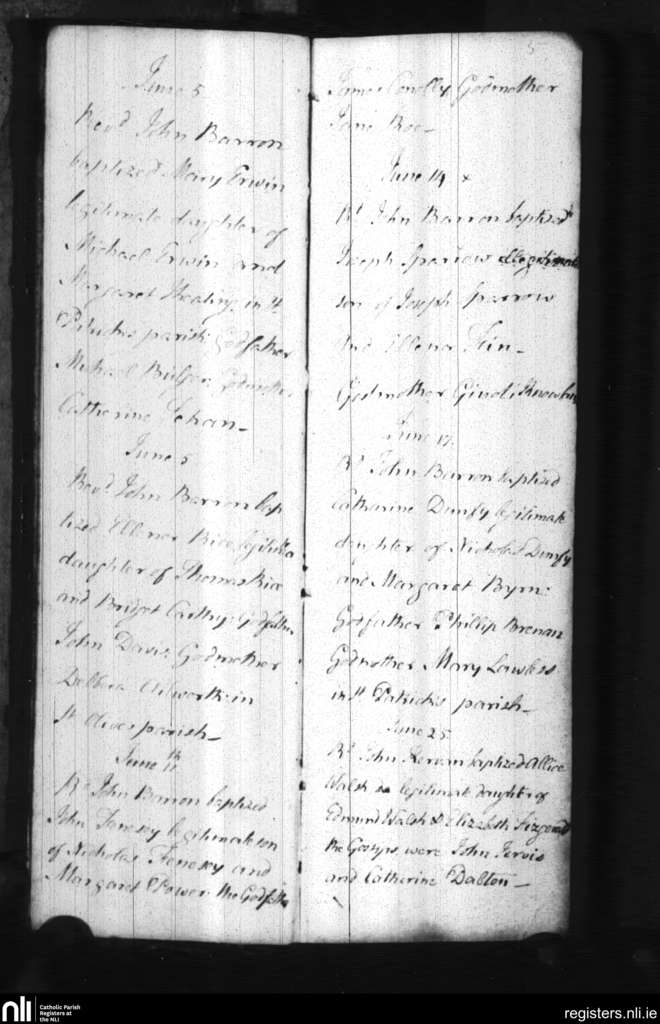 June 5
Revd John Barron
baptized Mary Erwin
legitimate daughter of
Michael Erwin and
Margaret Healy in St
Patricks parish Godfather
Michael Bulger Godmother
Catherine
June 5
Revd John Barron bap
tized Ellener Rice legitimate
daughter of Thomas Rice
and Bridget Carthy Godfather
John Davis Godmother
in
St parish
June
Rd John Barron baptized
John legitimate son
of Nicholas and
Margaret Power the Godfather
5
James Conolly Godmother
Jane Roe
June 14 x
Rd John Barron baptized
Joseph Sparrow illegitimate
son of Joseph Sparrow
and Ellenor
Godmother
June 17
Rd John Barron baptized
Catharine Dunfy legitimate
daughter of Nicholas Dunfy
and Margaret Byrn:
Godfather Phillip Brenan
Godmother Mary Lawless
in St Patricks parish
June 25
Rd John baptized Allice
Walsh legitimate daughter of
Edmund Walsh & Elizabeth Fizgerald
the Gosyps were John Jervis
and Catherine Dalton
nli
Catholic Parish
Registers at
the NLI
registers.nli.ie